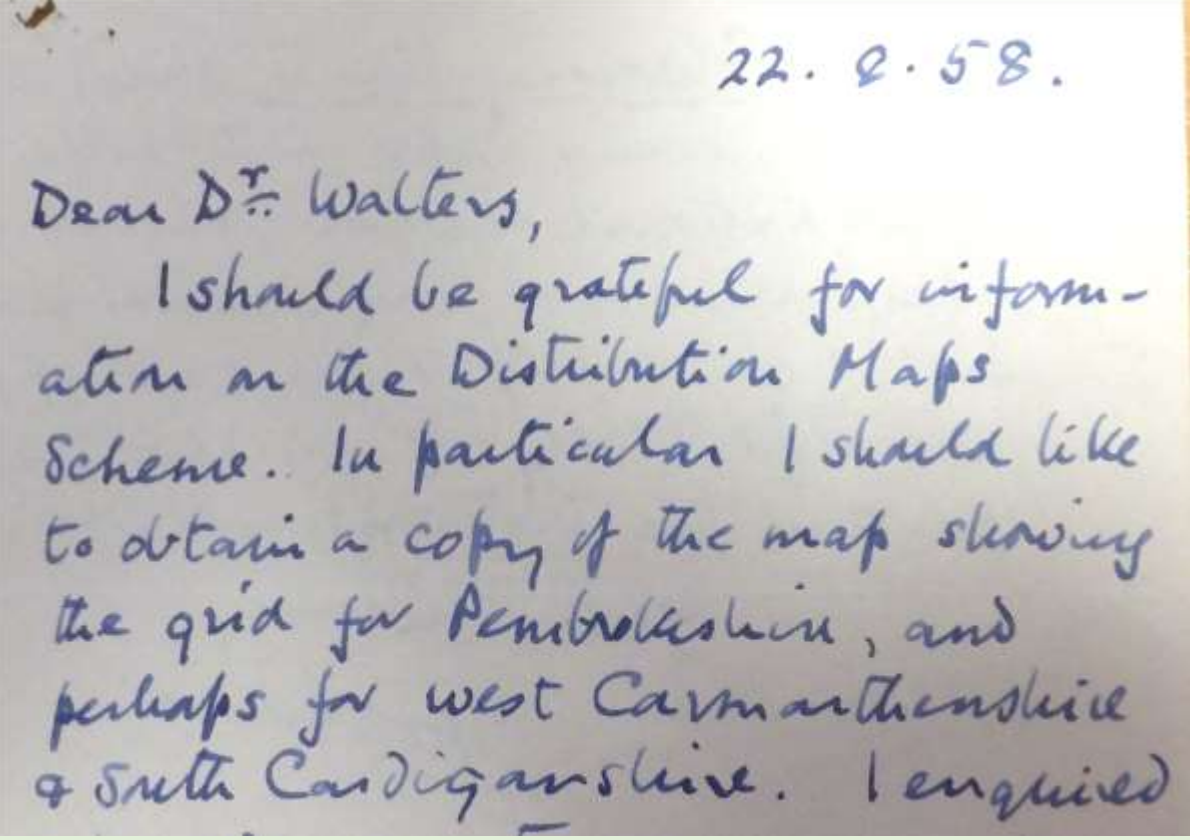 22. 8. 58.
Dear Dr. Walters,
I should be grateful for inform-
ation on the Distribution Maps
Scheme. In particular I should like
to obtain a copy of the map showing
the grid for Pembrokeshire, and
perhaps for west Carmarthenshire
& South Cardiganshire. I enquired